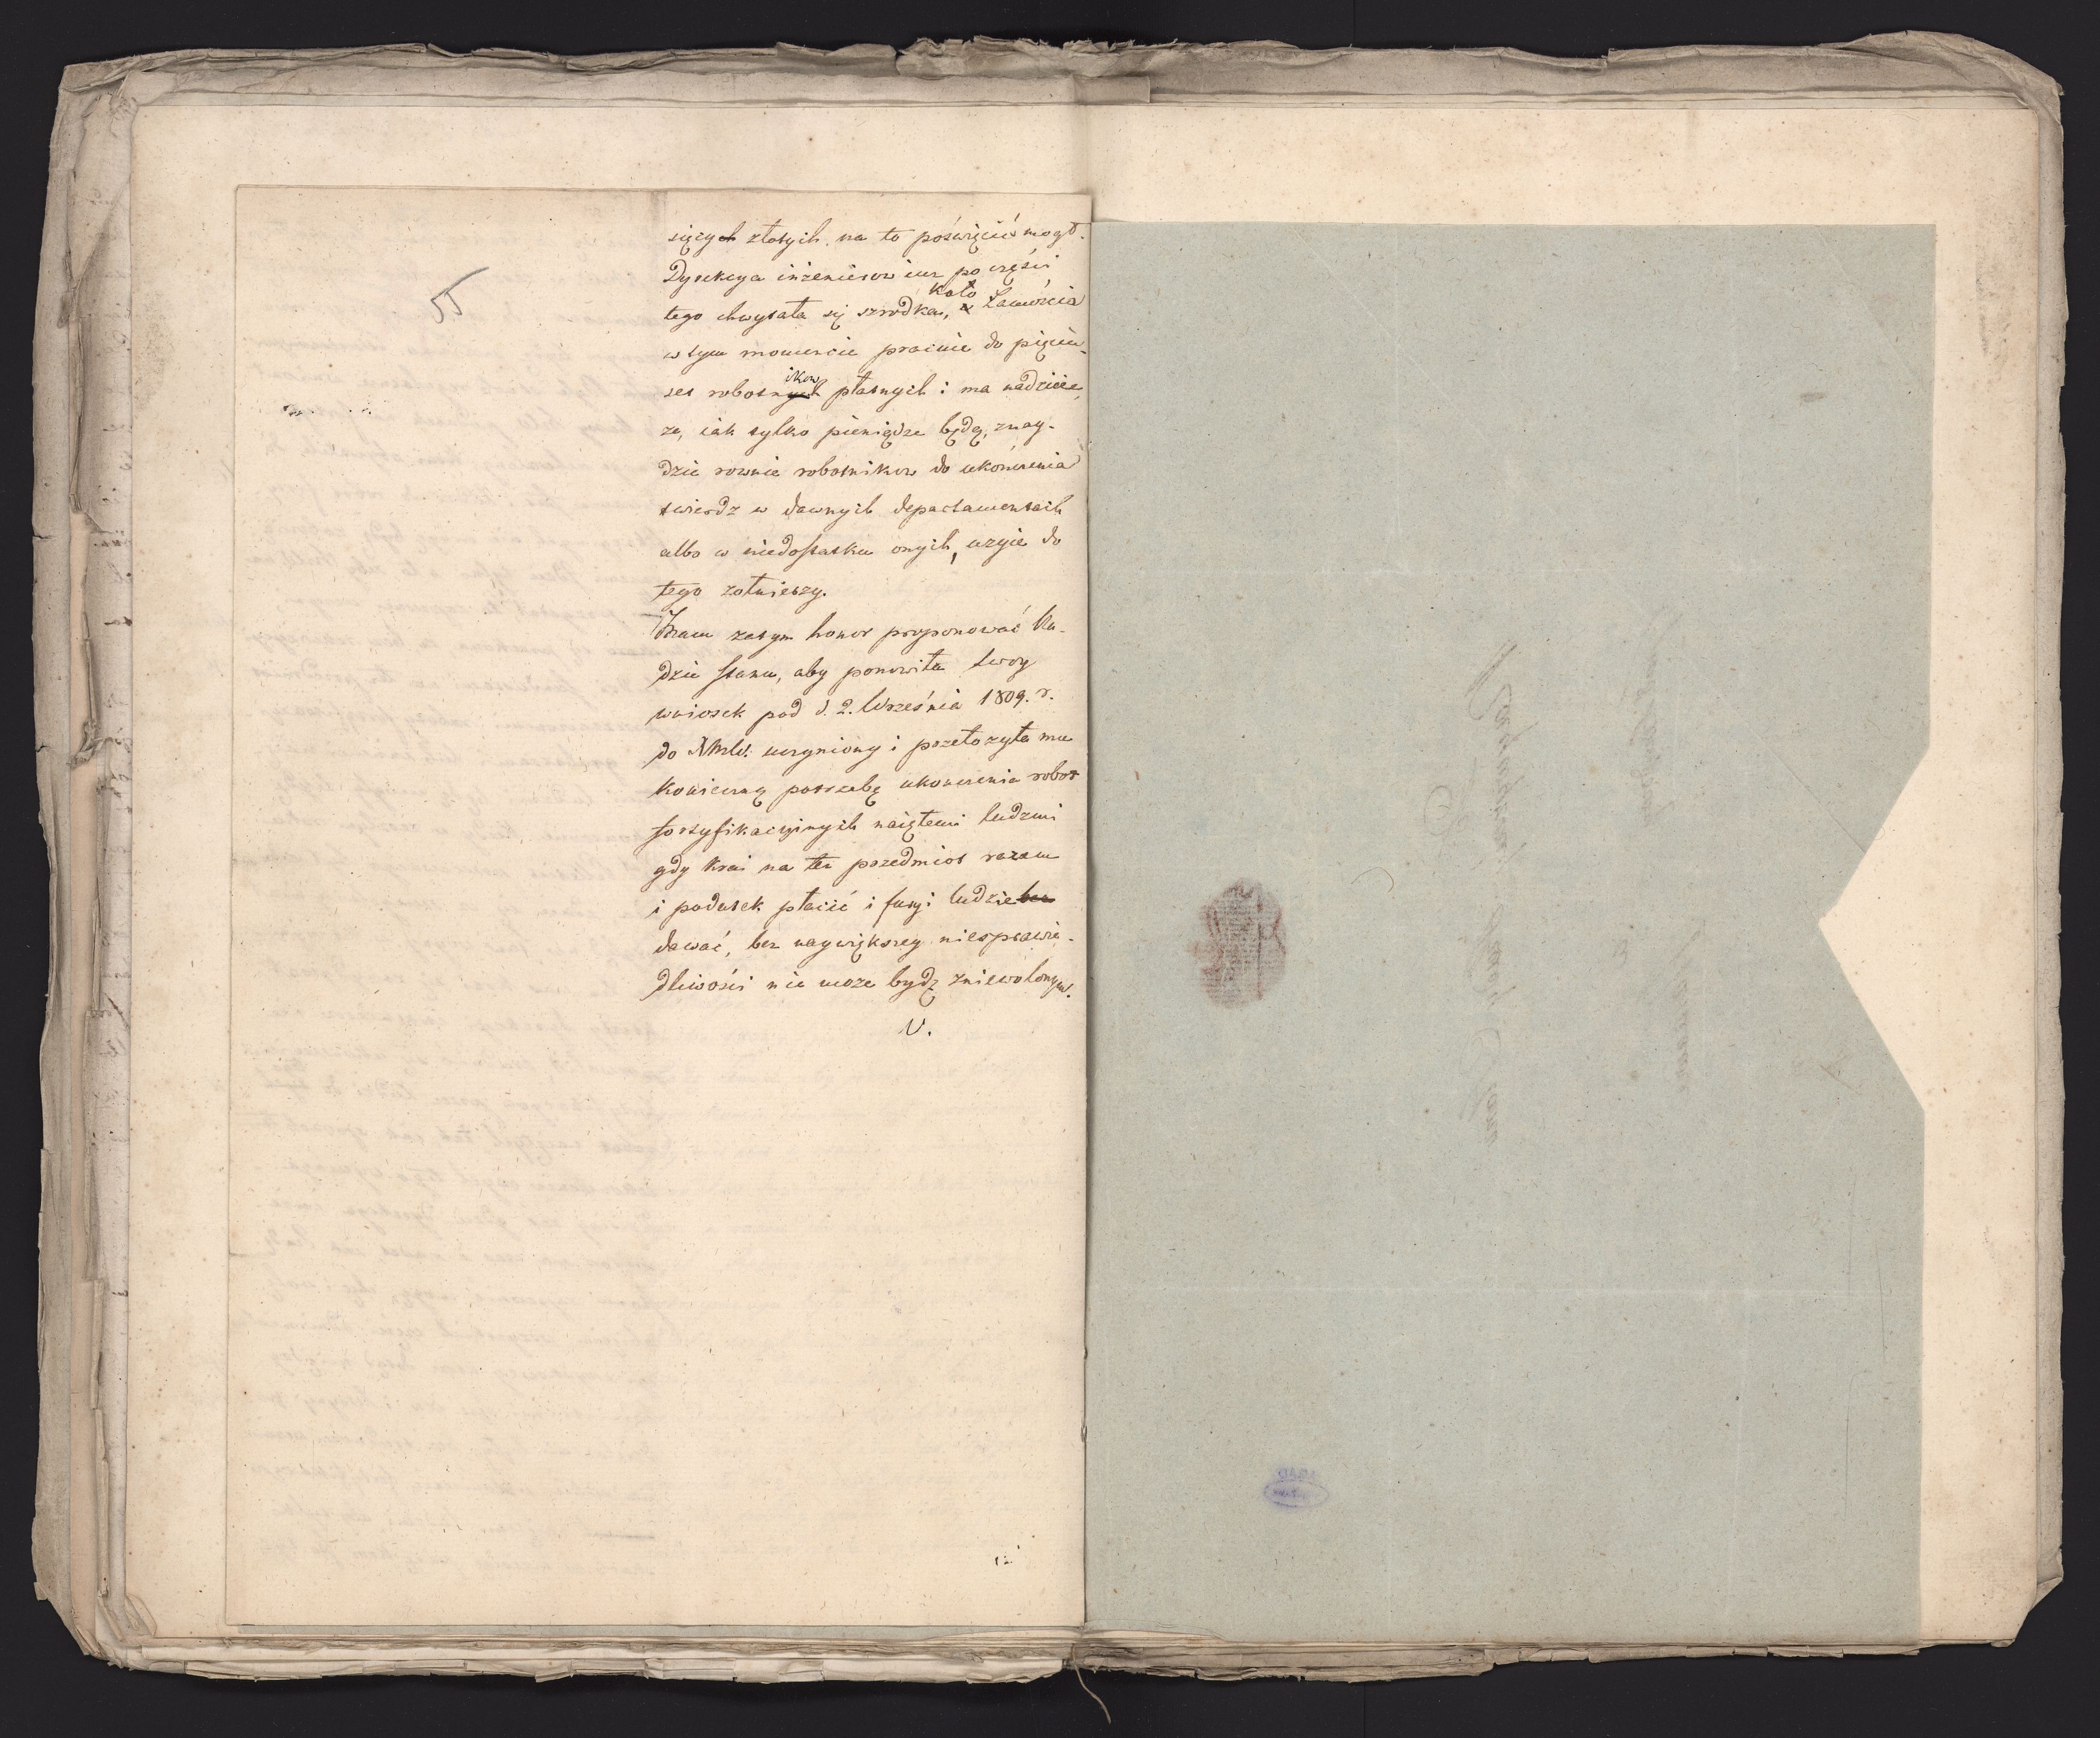 55
sięcych złotych na to poświęcić mogł.
Dyrekcya inżenierow iuz po części
tego chwytała się szrodka, koło Zamościa
w tym momencie pracuie do pięciu-
set robotnikow płatnych i ma nadzieię,
ze, iak tylko pieniądze będą, znay-
dzie rownie robotnikow do ukończenia
twierdz w dawnych departamentach
albo w niedostatku onych, uzyie do
tego zołnierzy.
Mam zatym honor proponować Ra-
dzie stanu, aby ponowiła swoy
wniosek pod d. 2. Września 1809. r.
do NMW. uczyniony i przełozyła mu
konieczną potrzebę ukonczenia robot
fortyfikacyinych naiętemi ludzmi
gdy krai na ten przedmiot razem
i podatek płacić i furyi ludzie ben
dawać, bez naywiększey niesprawie-
dliwości nie moze bydz zniewolonym.
V.
12